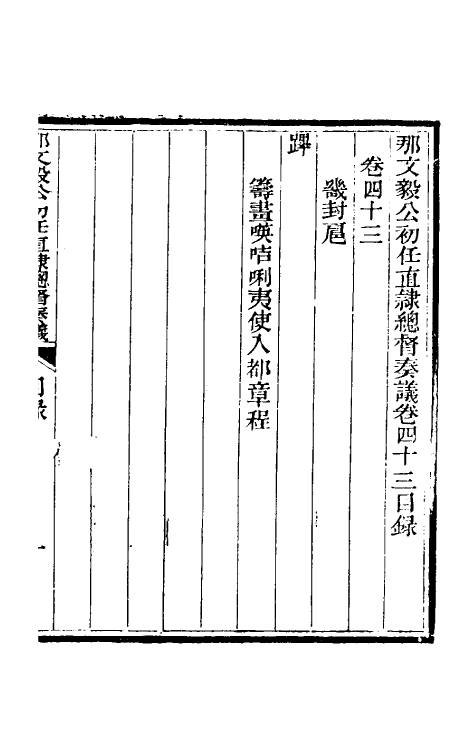 那文毅公初任直隸總督奏議卷四十三目錄
卷四十三
畿封扈
蹕
籌畫㗲咭唎夷使入都章程
那文毅公初任直隸總督奏議
目錄
一